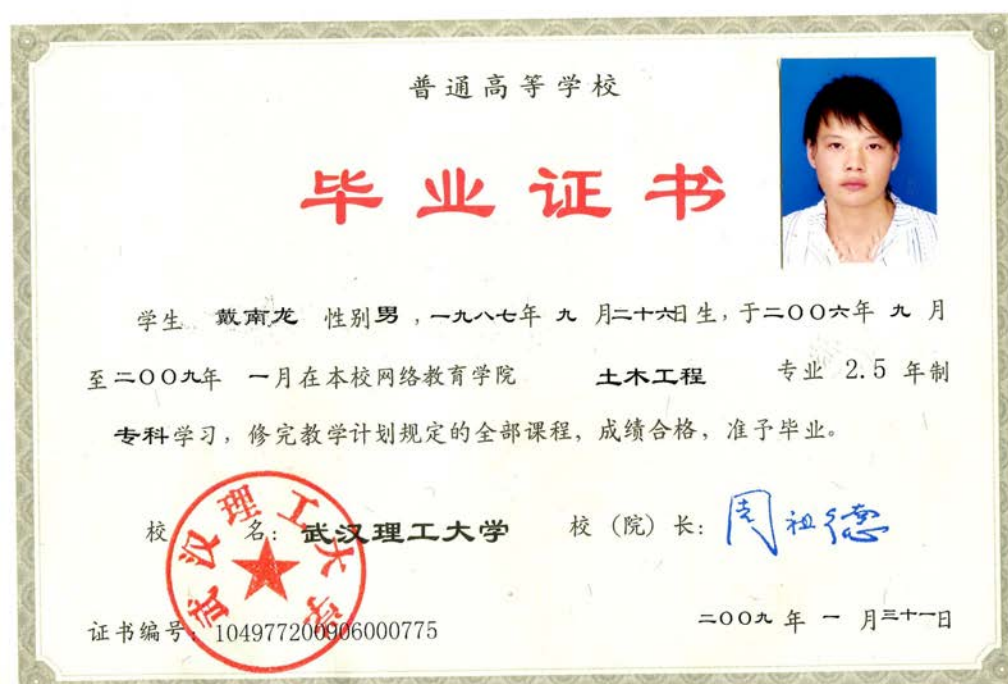 普通高等学校
毕业证书
学生 戴南龙 性别男，一九八七年 九 月二十六日生，于二〇〇六年 九 月
至二〇〇九年 一月在本校网络教育学院 土木工程 专业 2.5 年制
专科学习，修完教学计划规定的全部课程，成绩合格，准予毕业。
校 名：武汉理工大学 校（院）长：周祖德
武汉理工大学
证书编号：104977200906000775 二〇〇九 年 一 月三十一日